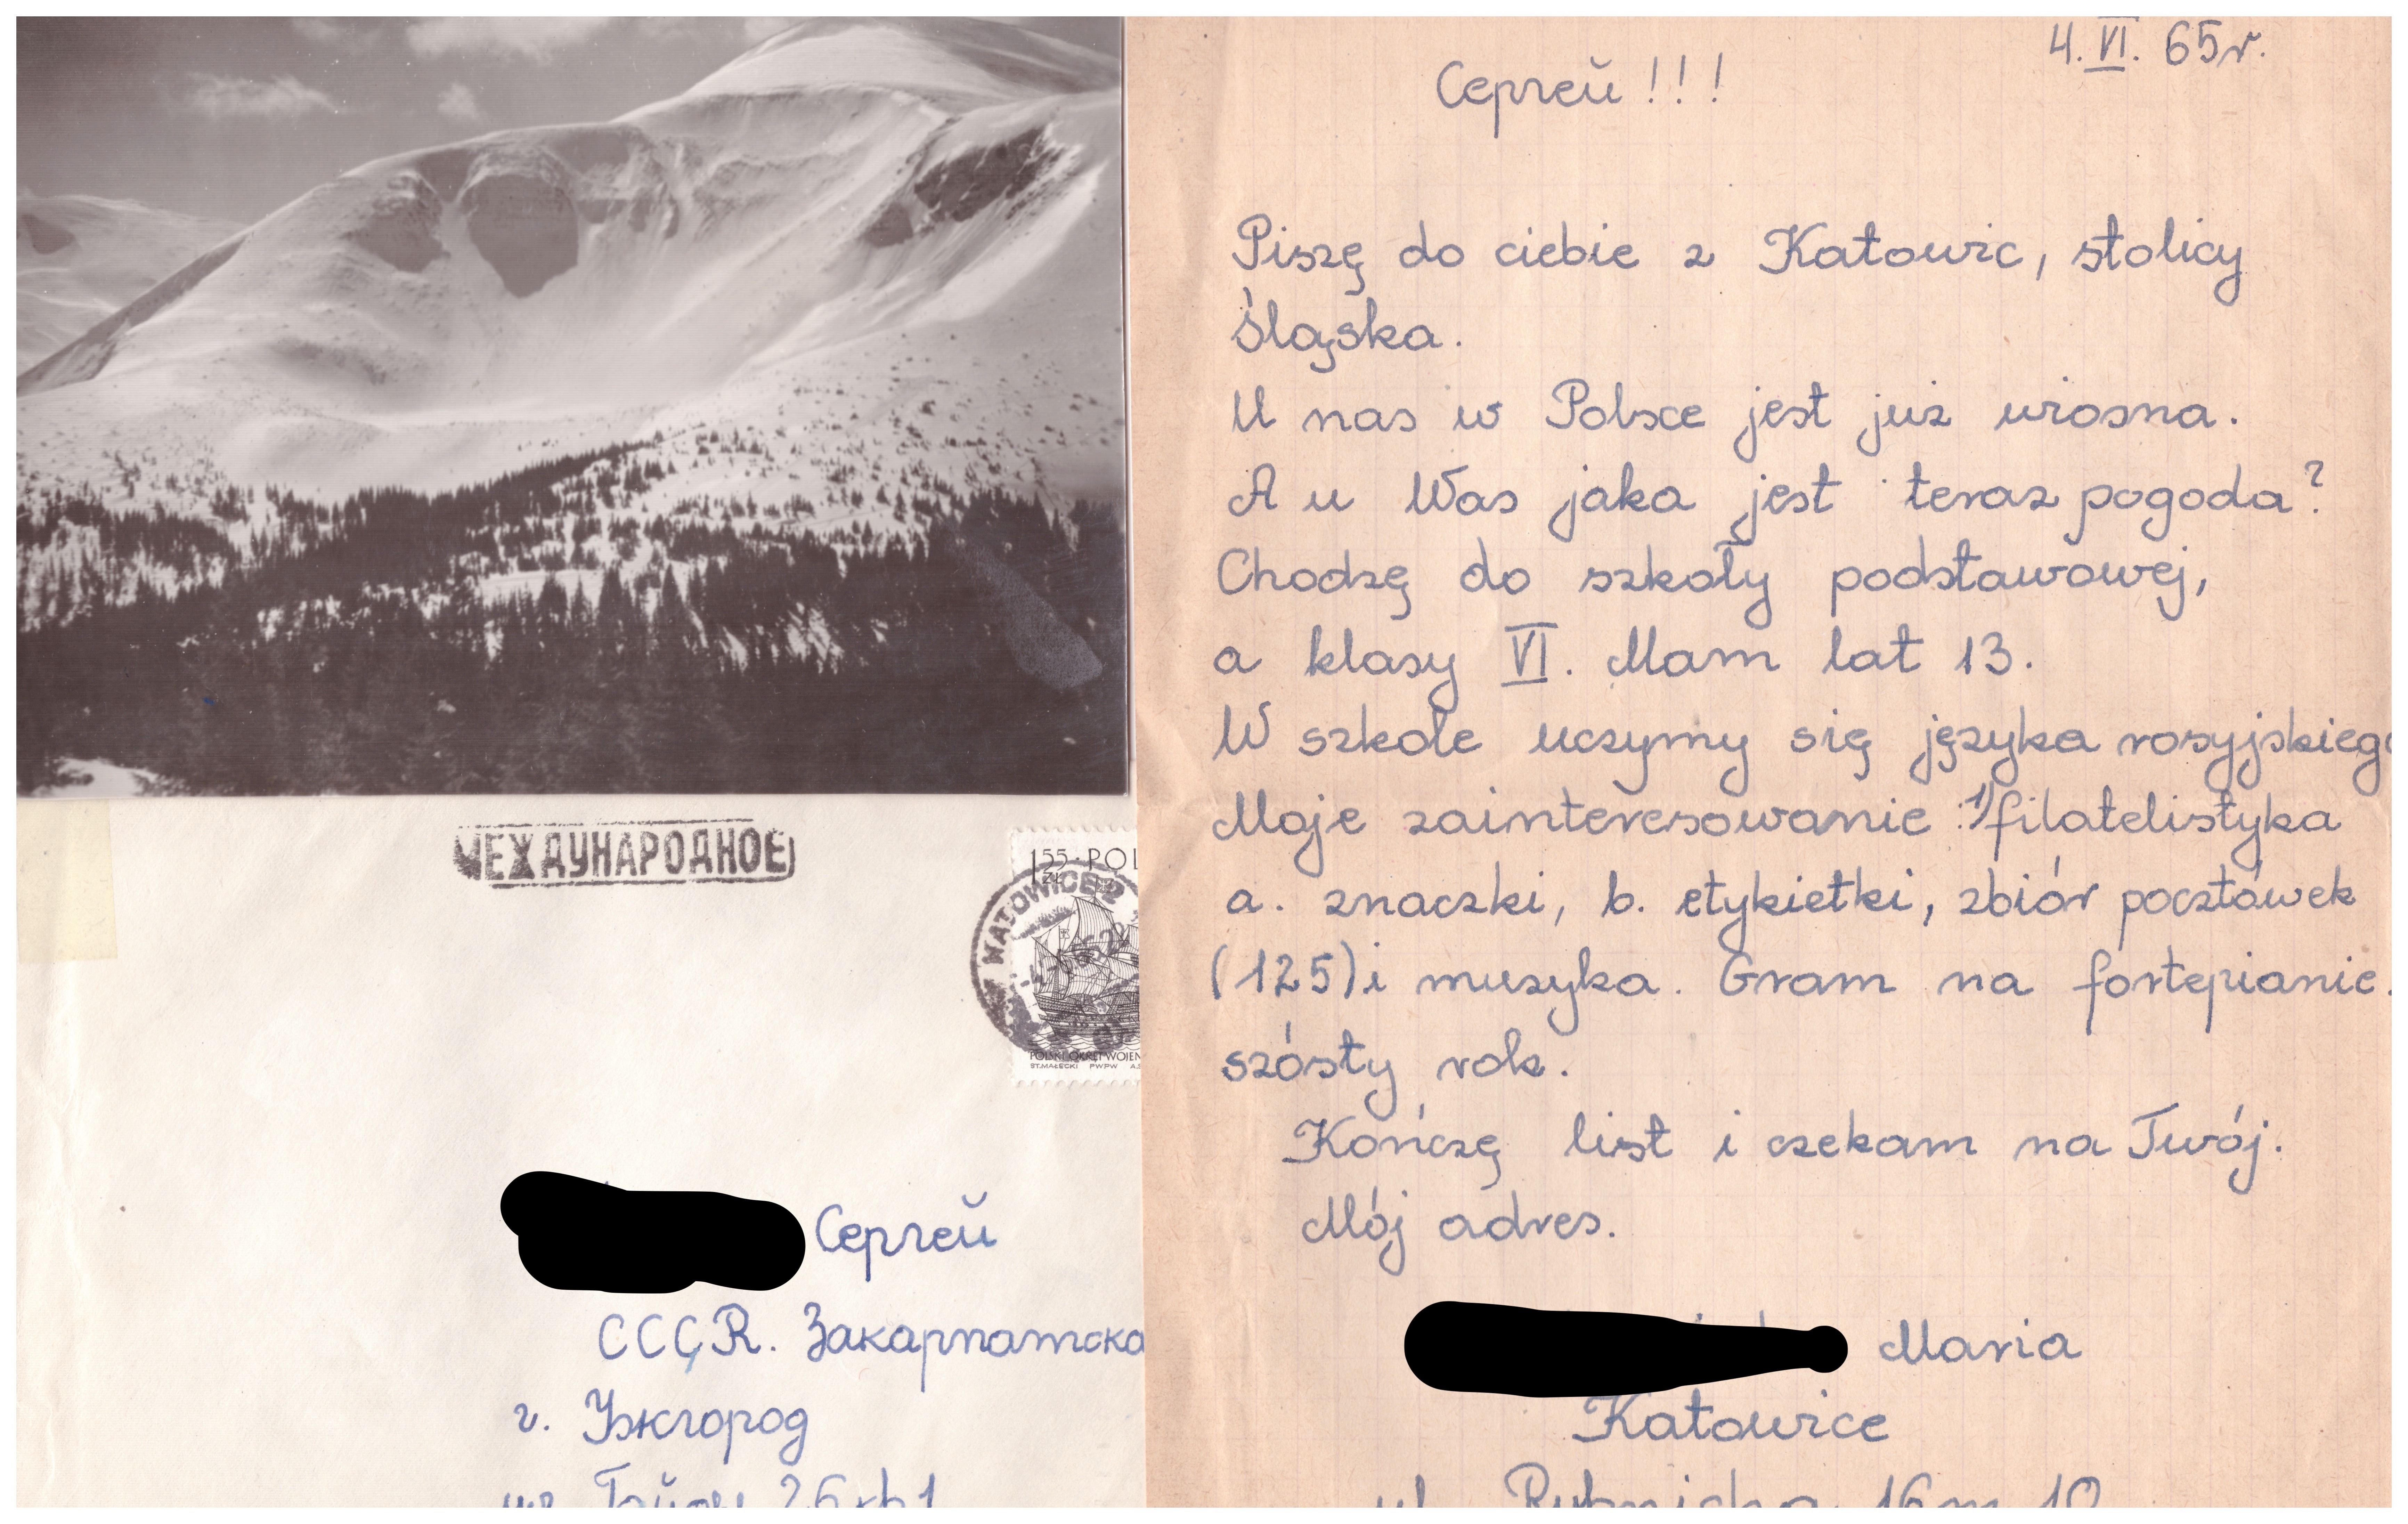 МЕЖДУНАРОДНОЕ
1 55 ZŁ · POL
KATOWICE 2
POLSKI OKRĘT WOJEN
ST.MAŁECKI PWPW
Сергей
СССR. Закарпатска
г. Ужгород
4.VI. 65r.
Сергей!!!
Piszę do ciebie z Katowic, stolicy
Śląska.
U nas w Polsce jest już wiosna.
A u Was jaka jest teraz pogoda?
Chodzę do szkoły podstawowej,
a klasy VI. Mam lat 13.
W szkole uczymy się języka rosyjskiego
Moje zainteresowanie: 1) filatelistyka
a. znaczki, b. etykietki, zbiór pocztówek
(125) i muzyka. Gram na fortepianie.
szósty rok.
Kończę list i czekam na Twój.
Mój adres.
Maria
Katowice
ul. Rybnicka 16 m 10